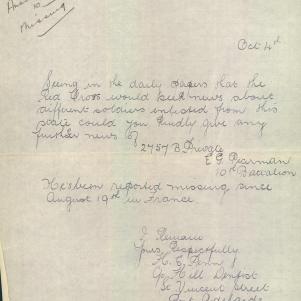 missing
Oct 4th
Seeing in the daily papers that the
Red Cross would seek news about
different soldiers enlisted from this
state could you kindly give any
further news of
2757 B Private
E G Pearman
10th Battalion
He's been reported missing since
August 19th in France
I Remain
Yours Respectfully
Hill Dentist
St Vincent Street
Port Adelaide